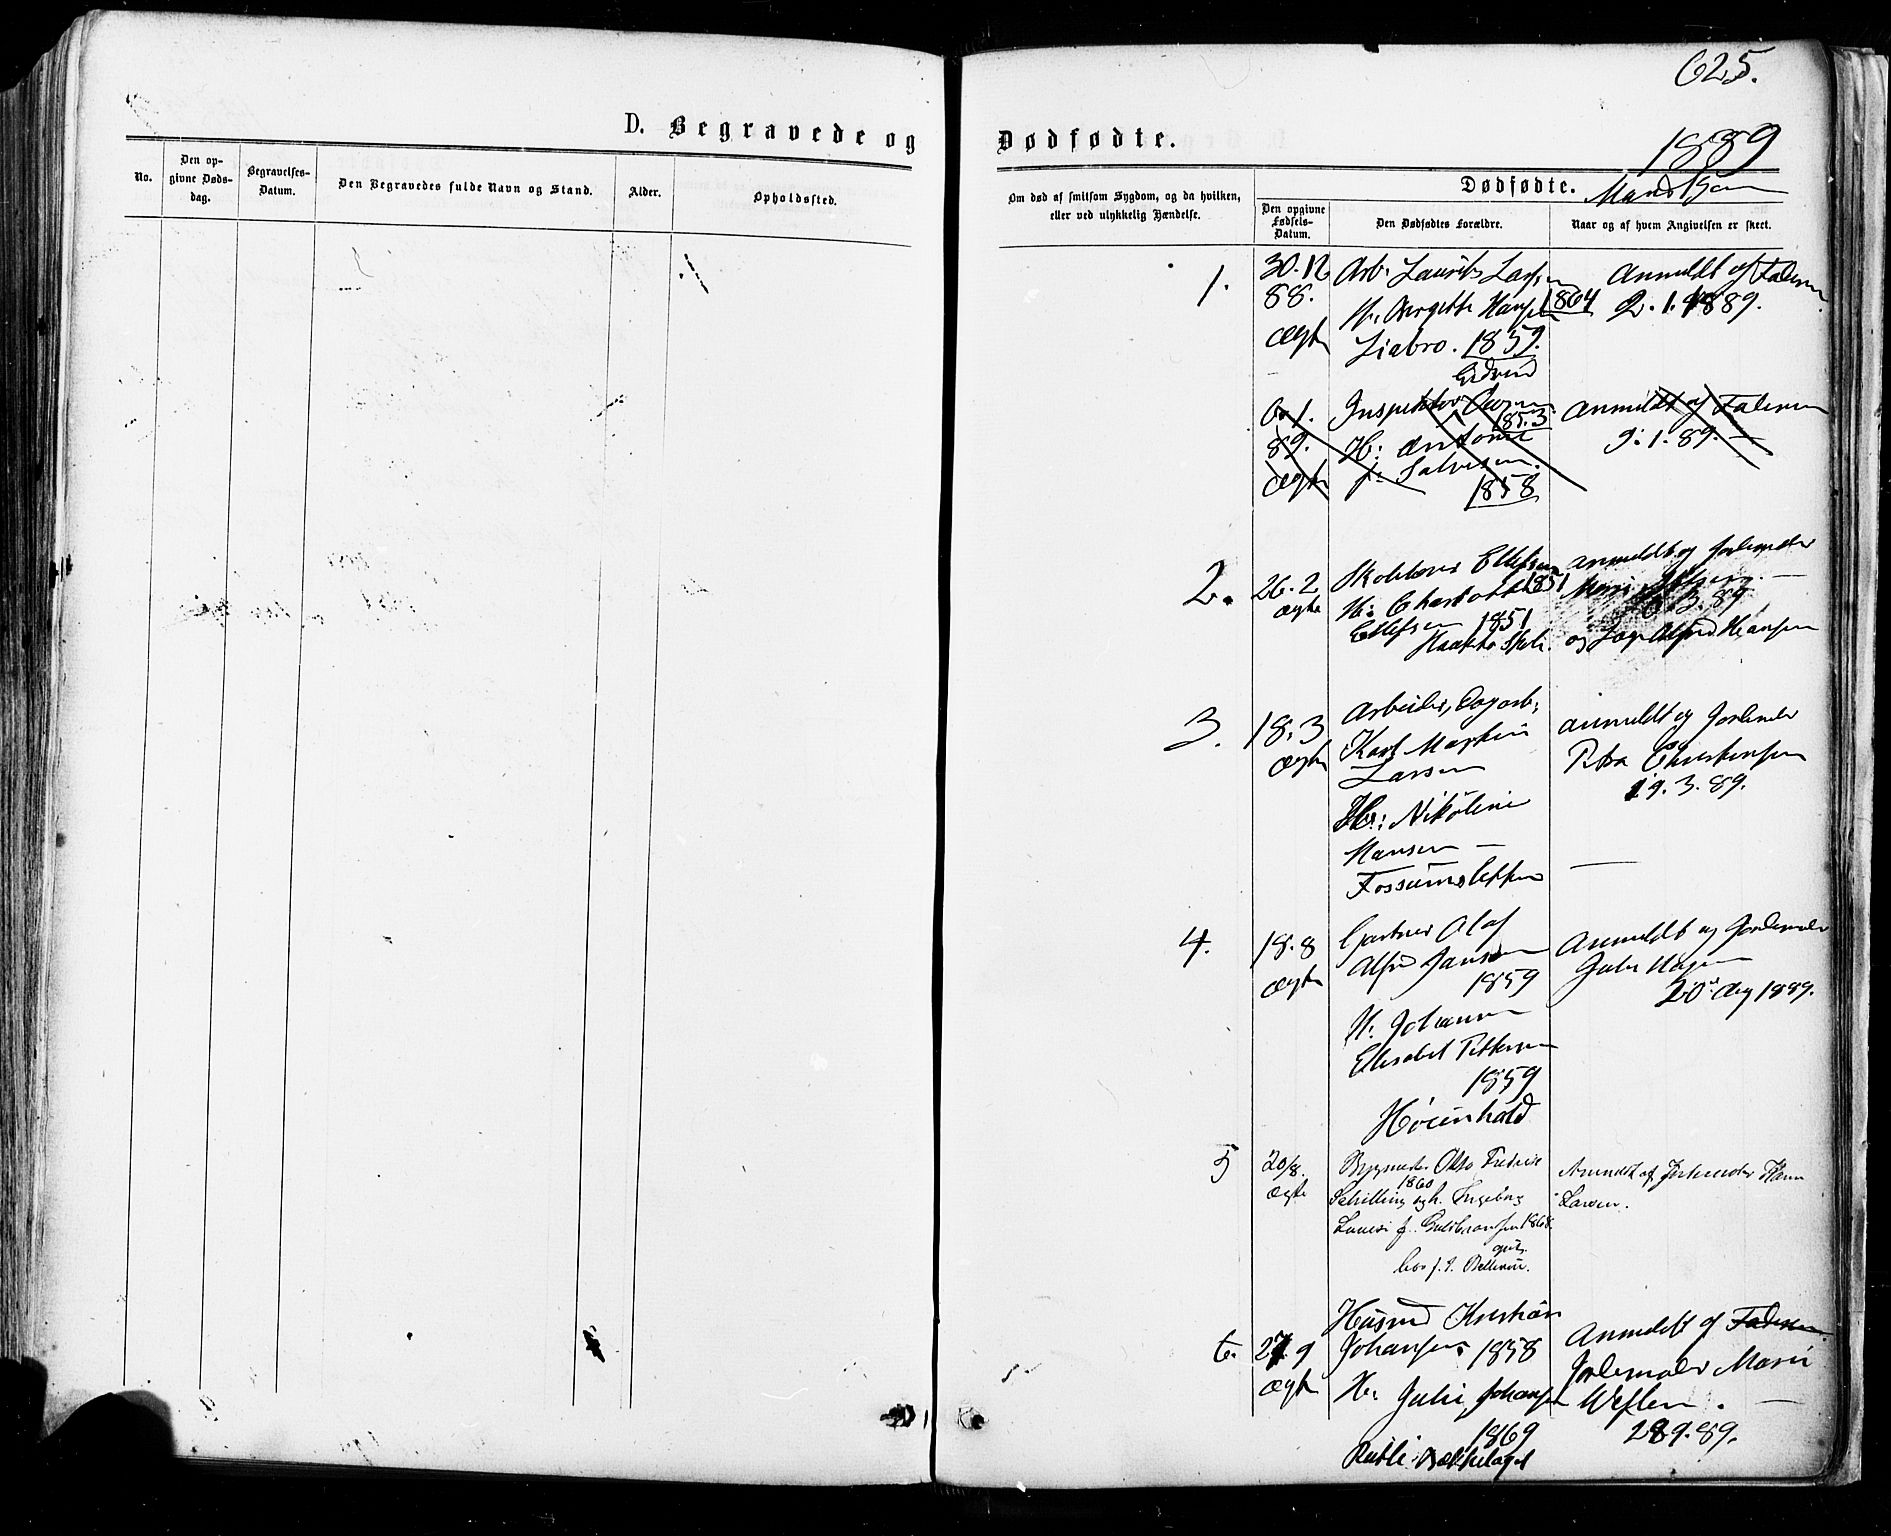 625.
D. Begravede og
Dødfødte.
1889
No.
Den op-
givne Døds-
dag.
Begravelses-
Datum.
Den Begravedes fulde Navn og Stand.
Alder.
Opholdssted.
Om død af smitsom Sygdom, og da hvilken,
eller ved ulykkelig Hændelse.
Dødfødte.
Den opgivne
Fødsels-
Datum.
Den Dødfødtes Forældre.
Naar og af hvem Angivelsen er skeet.
1.
30.12
88.
ægte
Arb. Laurits Larsen
1864
H: Bergitte Hansen
Liabro. 1859.
Anmeldt af Faderen
2.1.1889.
6.1.
89.
ægte
Inspektør
1853
H: Antonie
f: Salvesen.
1858
Anmeldt af Faderen
9.1.89.
2.
26.2
ægte
Skolelærer Ellefsen
1851
H: Charlotte
Ellefsen 1851
Anmeldt af Jordemoder
3.89.
og Alfred Hansen
3.
18.3
ægte
Arbeider, Dagarb:
Karl Martin
Larsen
H: Nikoline
Hansen
Fossumsløkken
Anmeldt af Jordemoder
Petra Christensen
19.3.89.
4.
18.8
ægte
Gartner Olaf
Alfred Jansen
1859
H: Johanne
Elisabet Pettersen
1859
Høienhald
Anmeldt af Jordemoder
20de Aug 1889.
5
20/8.
ægte
Bygmester Otto Fredrik
1860
Schilling og h. Ingeborg
Louise f. Guldbransen 1868.
Bellevue.
Anmeldt af Jordemoder Hanna
Larsen.
6.
27.9
ægte
Husmd Kristian
Johansen 1858
H: Julie Johansen
1869
Bækkelaget
Anmeldt af Faderen
Jordemoder Marie
Weflen.
28.9.89.